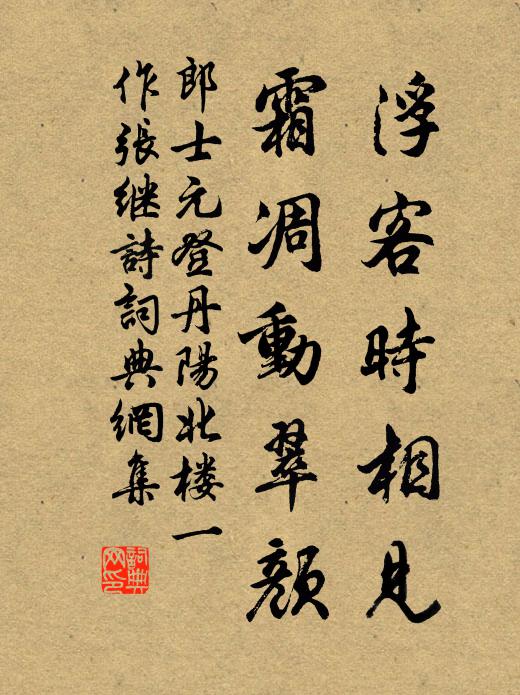 浮客時相見
霜凋動翠顏
郎士元登丹陽北楼一
作張继詩詞典網集
詞典
网印